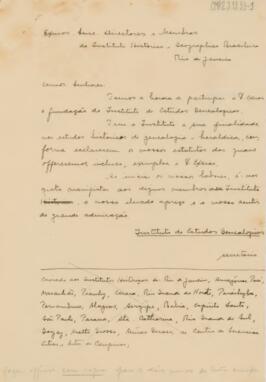 Exmos Snrs. Directores e Membros
do Instituto Historico e Geographico Brasileiro
Rio de Janeiro
Exmos Senhores.
Temos a honra de participar a V Excias
a fundação do Instituto de Estudos Genealogicos.
Tem o Instituto a sua finalidade
nos estudos historicos de genealogia e heraldica, con-
forme esclarecem os nossos estatutos dos quaes
offerecemos inclusos, exemplar a V Excias.
Ao iniciar os nossos labores, é-nos
grato manifestar aos dignos membros desse Instituto
o nosso elevado apreço e o nosso sentir
de grande admiração.
Instituto de Estudos Genealogicos
secretario
aos Institutos Historicos do Rio de Janeiro, Amazonas, Pará,
Maranhão, Piauhy, Ceará, Rio Grande do Norte, Parahyba,
Pernambuco, Alagoas, Sergipe, Bahia, Espirito Santo,
São Paulo, Paraná, Sta Catharina, Rio Grande do Sul,
Goyaz, Matto Grosso, Minas Geraes e Centro de Sciencias
Letras, Artes de Campinas.
com copia